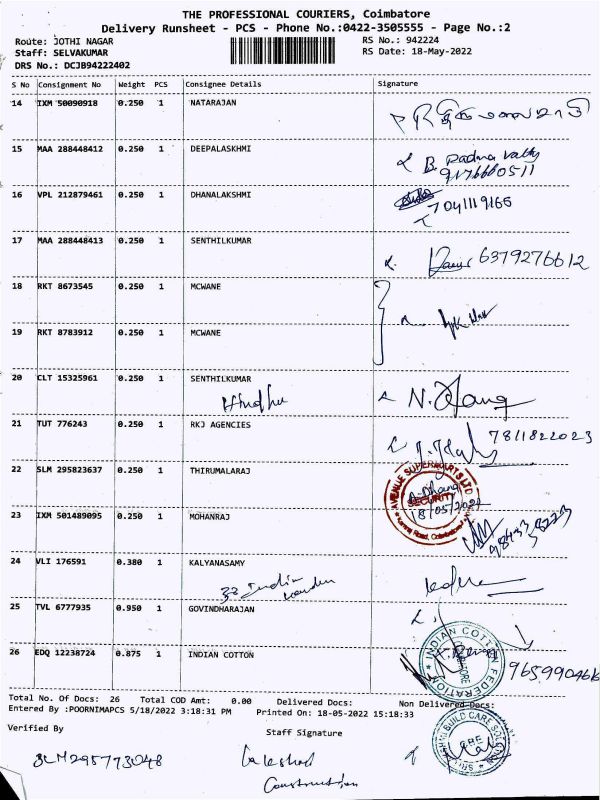 THE PROFESSIONAL COURIERS, Coimbatore
Delivery Runsheet - PCS - Phone No.:0422-3505555 - Page No.:2
Route: JOTHI NAGAR RS No.: 942224
Staff: SELVAKUMAR RS Date: 18-May-2022
DRS No.: DCJB94222402
S No Consignment No Weight PCS Consignee Details Signature
14 IXM 50090918 0.250 1 NATARAJAN
15 MAA 288448412 0.250 1 DEEPALASKHMI B. Padma
9176660511
16 VPL 212879461 0.250 1 DHANALAKSHMI
7041119165
17 MAA 288448413 0.250 1 SENTHILKUMAR
6379276612
18 RKT 8673545 0.250 1 MCWANE
19 RKT 8783912 0.250 1 MCWANE
20 CLT 15325961 0.250 1 SENTHILKUMAR
N.
21 TUT 776243 0.250 1 RKJ AGENCIES
7811822023
22 SLM 295823637 0.250 1 THIRUMALARAJ
AVENUE SUPERMARTS LTD
SECURITY
18/05/2022
23 IXM 501489095 0.250 1 MOHANRAJ
24 VLI 176591 0.380 1 KALYANASAMY
India
25 TVL 6777935 0.950 1 GOVINDHARAJAN
26 EDQ 12238724 0.875 1 INDIAN COTTON
INDIAN COTTON FEDERATION
Total No. Of Docs: 26 Total COD Amt: 0.00 Delivered Docs: Non Delivered Docs:
Entered By :POORNIMAPCS 5/18/2022 3:18:31 PM Printed On: 18-05-2022 15:18:33
Verified By Staff Signature
SLM295773048
Construction